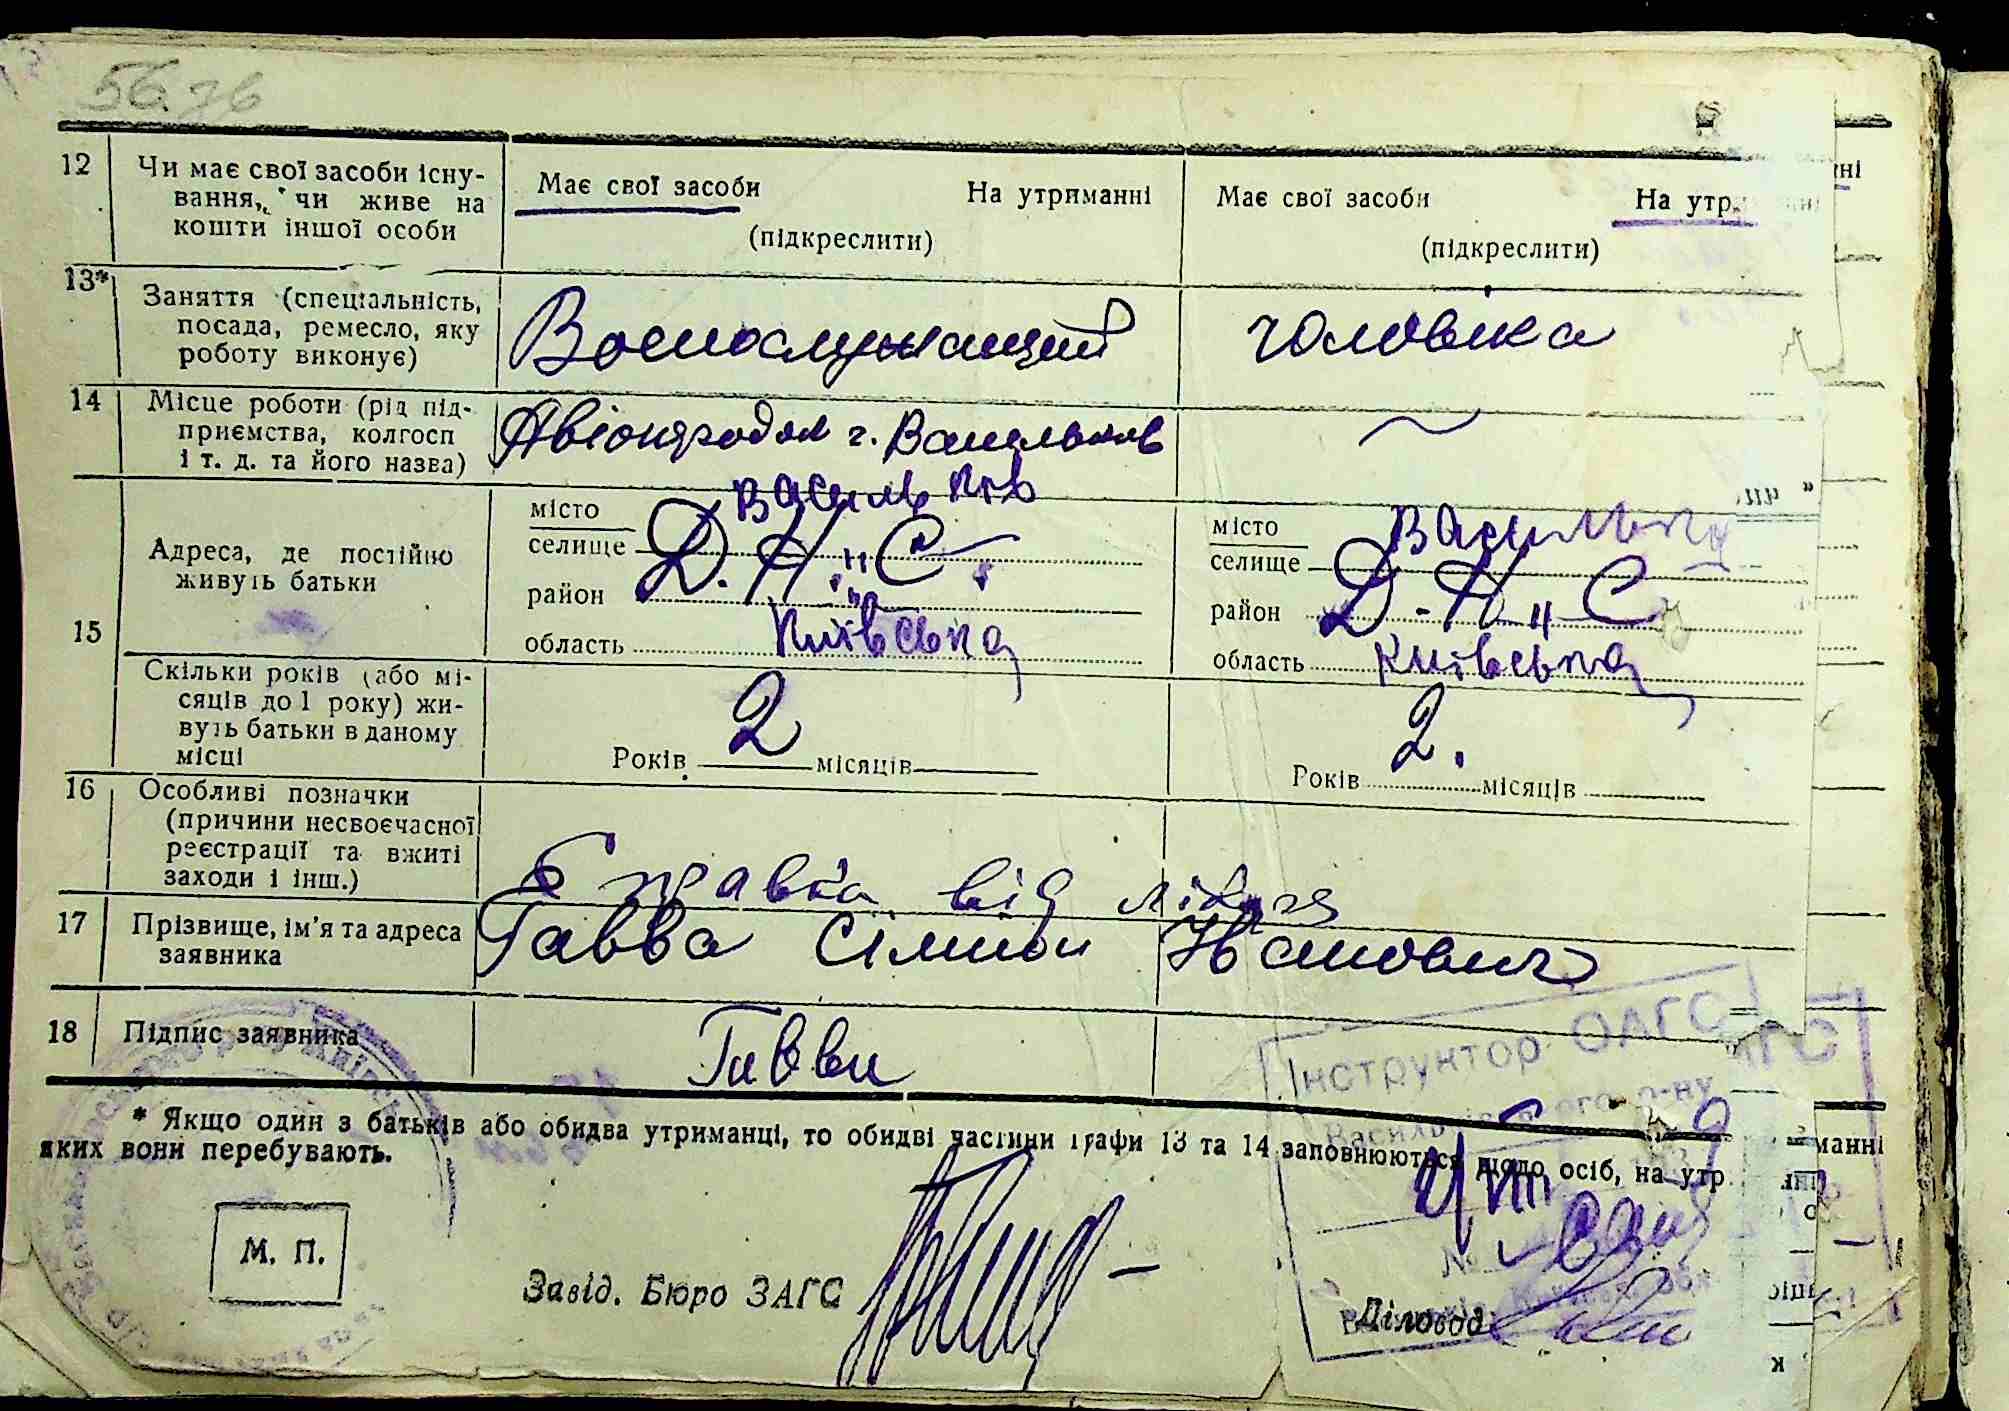 56.зв
12 Чи має свої засоби існу-
вання, чи живе на
кошти іншої особи
Має свої засоби На утриманні
(підкреслити)
Має свої засоби На утр
(підкреслити)
13* Заняття (спеціальність,
посада, ремесло, яку
роботу виконує)
Военослужащий
чоловіка
14 Місце роботи (рід під-
приємства, колгосп
і т. д. та його назва)
Авіогородок г. Васильков
15
Адреса, де постійно
живуть батьки
місто Васильків
селище
район Д.Н.„С.
область Київська
місто
селище
район Д-Н„С
область Київська
Скільки років (або мі-
сяців до 1 року) жи-
вуть батьки в даному
місці
Років 2 місяців
Років 2. місяців
16 Особливі позначки
(причини несвоєчасної
реєстрації та вжиті
заходи і інш.)
Справка від лікаря
17 Прізвище, ім'я та адреса
заявника
Гавва Сімион Іванович
18 Підпис заявника
Гавва
* Якщо один з батьків або обидва утриманці, то обидві частини графи 13 та 14 заповнюються щодо осіб, на утр
яких вони перебувають.
Інструктор ОАГС
М. П.
Завід. Бюро ЗАГС
Діловод